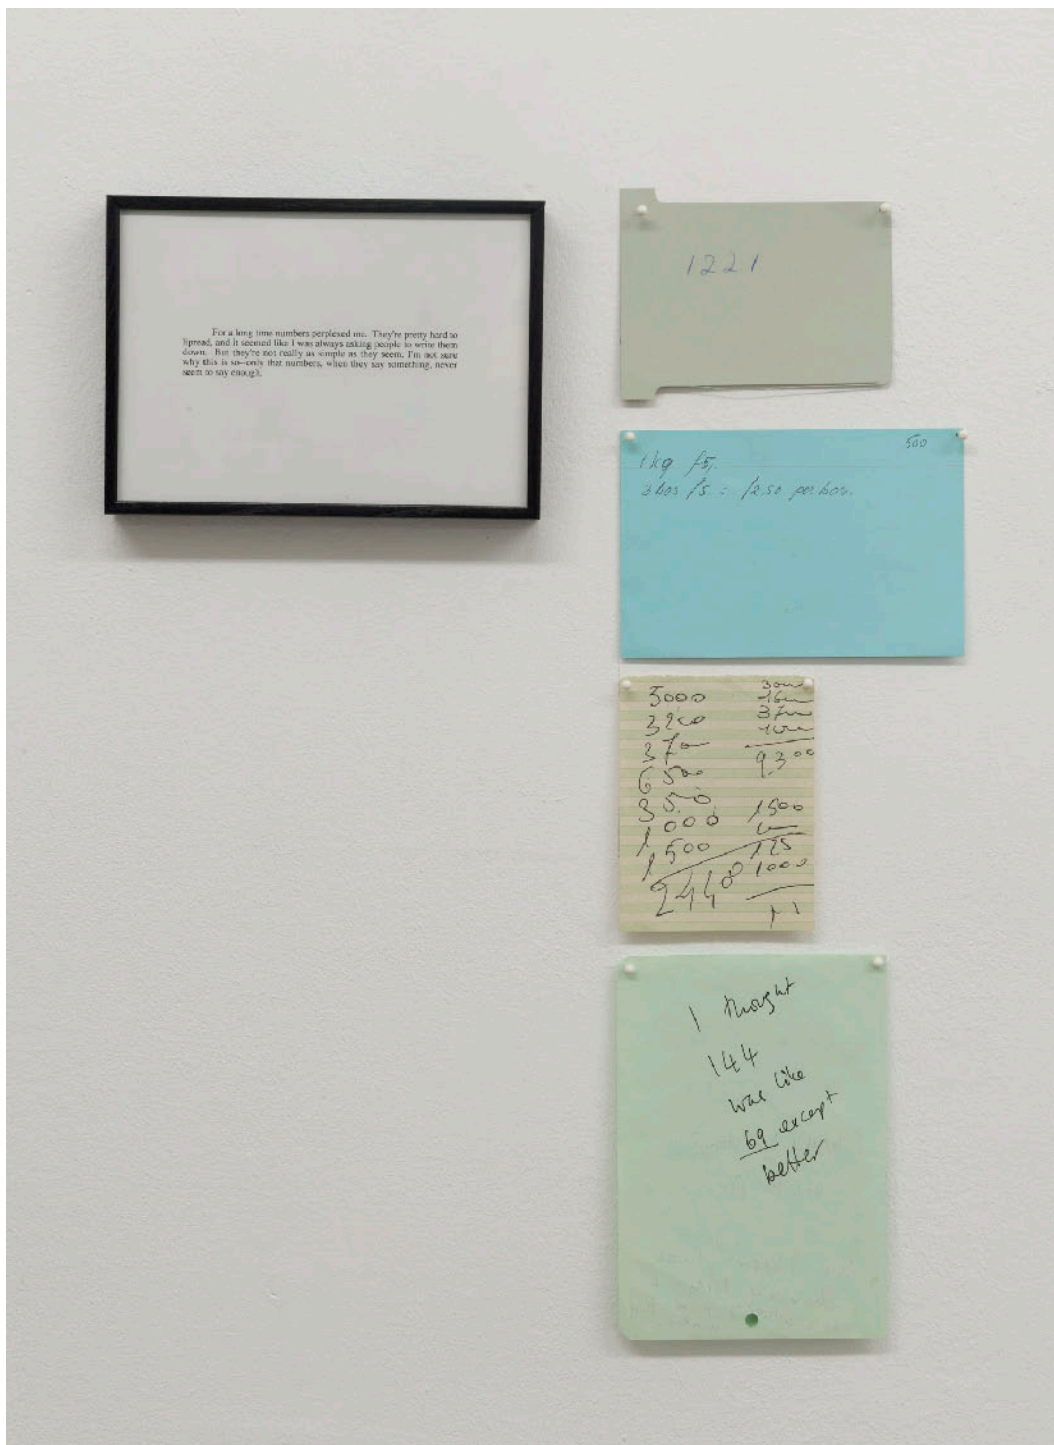 For a long time numbers perplexed me. They're pretty hard to
lipread, and it seemed like I was always asking people to write them
down. But they're not really as simple as they seem. I'm not sure
why this is so--only that numbers, when they say something, never
seem to say enough.
1221
500
1 kg f5,
3 bos f5. = f2.50 per bos.
5000
3200
3700
6500
3500
1000
1500
2448
9300
1500
125
1000
I thought
144
was like
69 except
better